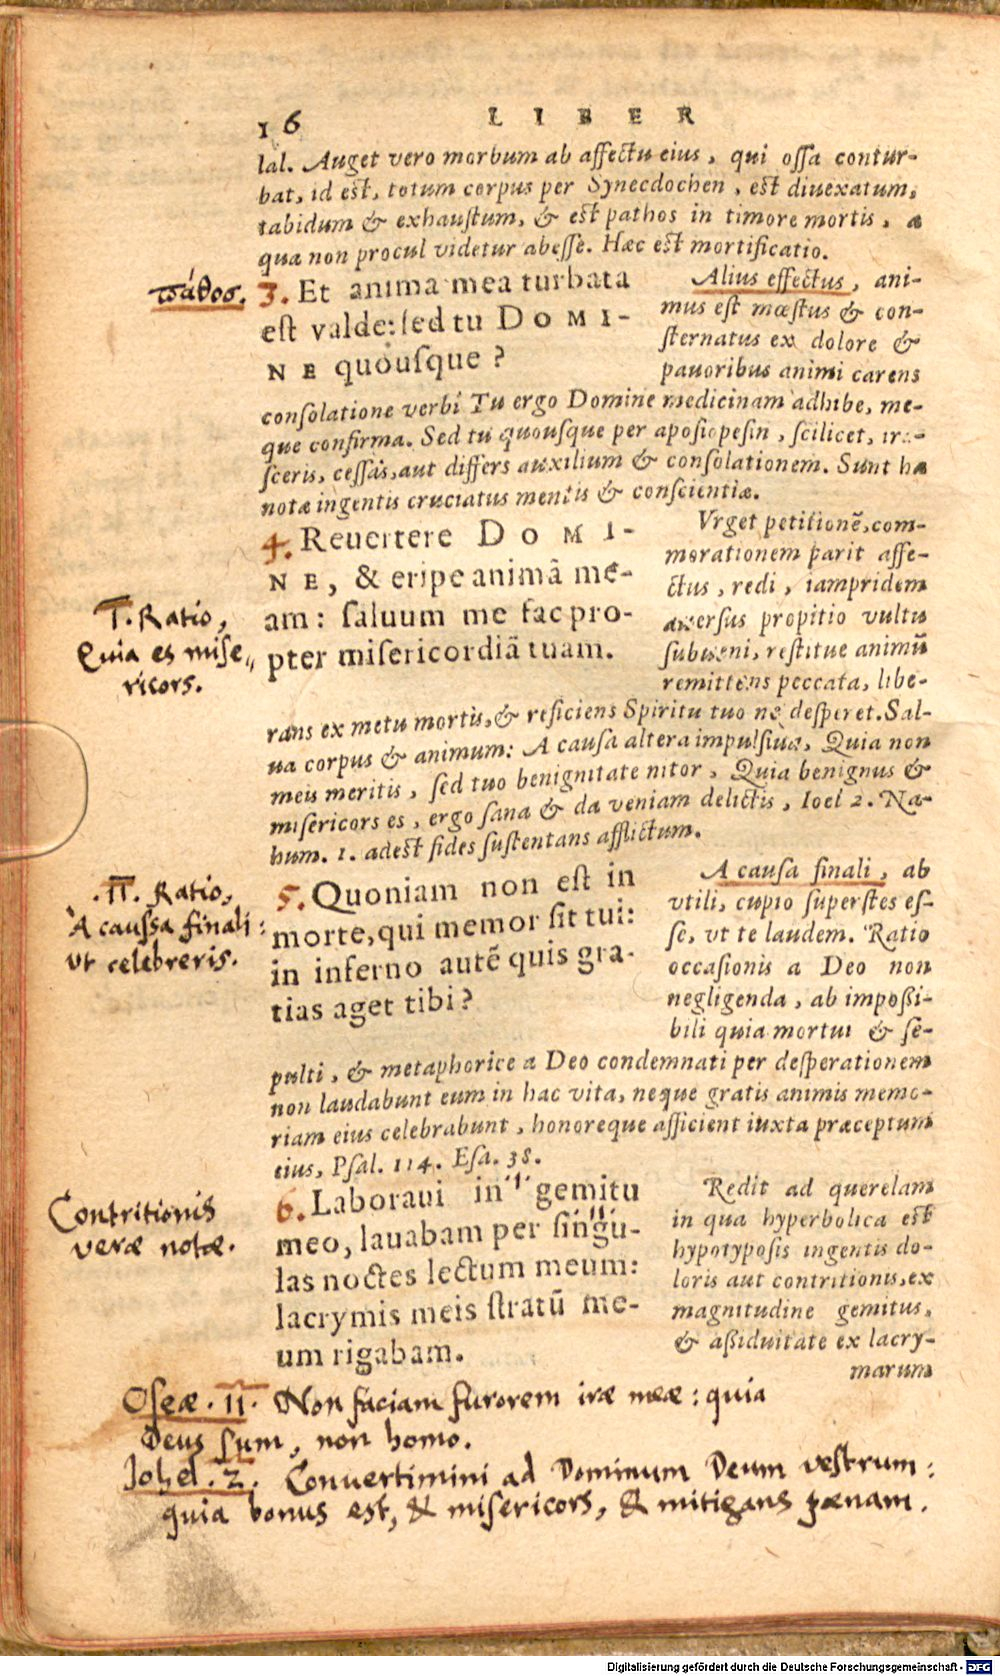 16 LIBER
lal. Auget vero morbum ab affectu eius, qui ossa contur-
bat, id est, totum corpus per Synecdochen, est diuexatum,
tabidum & exhaustum, & est pathos in timore mortis, a
qua non procul videtur abesse. Hæc est mortificatio.
πάθος.
3. Et anima mea turbata
est valde: sed tu DOMI-
NE quousque?
Alius effectus, ani-
mus est mœstus & con-
sternatus ex dolore &
pauoribus animi carens
consolatione verbi Tu ergo Domine medicinam adhibe, me-
que confirma. Sed tu quousque per aposiopesin, scilicet, ira-
sceris, cessas, aut differs auxilium & consolationem. Sunt hæ
notæ ingentis cruciatus mentis & conscientiæ.
4. Reuertere DOMI-
NE, & eripe animã me-
am: saluum me fac pro-
pter misericordiã tuam.
I. Ratio,
Quia es mise„
ricors.
Vrget petitionẽ, com-
morationem parit affe-
ctus, redi, iampridem
auersus propitio vultu
subueni, restitue animũ
remittens peccata, libe-
rans ex metu mortis, & reficiens Spiritu tuo ne desperet. Sal-
ua corpus & animum: A causa altera impulsiua, Quia non
meis meritis, sed tuo benignitate nitor, Quia benignus &
misericors es, ergo sana & da veniam delictis, Ioel 2. Na-
hum. 1. adest fides sustentans afflictum.
.II. Ratio,
A caussa finali:
vt celebreris.
5. Quoniam non est in
morte, qui memor sit tui:
in inferno autẽ quis gra-
tias aget tibi?
A causa finali, ab
vtili, cupio superstes es-
se, vt te laudem. Ratio
occasionis a Deo non
negligenda, ab impoßi-
bili quia mortui & se-
pulti, & metaphorice a Deo condemnati per desperationem
non laudabunt eum in hac vita, neque gratis animis memo-
riam eius celebrabunt, honoreque afficient iuxta præceptum
eius, Psal. 114. Esa. 38.
Contritionis
veræ notæ.
6. Laboraui in gemitu
meo, lauabam per singu-
las noctes lectum meum:
lacrymis meis stratũ me-
um rigabam.
Redit ad querelam
in qua hyperbolica est
hypotyposis ingentis do-
loris aut contritionis, ex
magnitudine gemitus,
& aßiduitate ex lacry-
marum
Oseæ. 11. Non faciam furorem iræ meæ: quia
Deus sum, non homo.
Johel. 2. Convertimini ad Dominum Deum vestrum:
quia bonus est, & misericors, & mitigans pœnam.
Digitalisierung gefördert durch die Deutsche Forschungsgemeinschaft - DFG